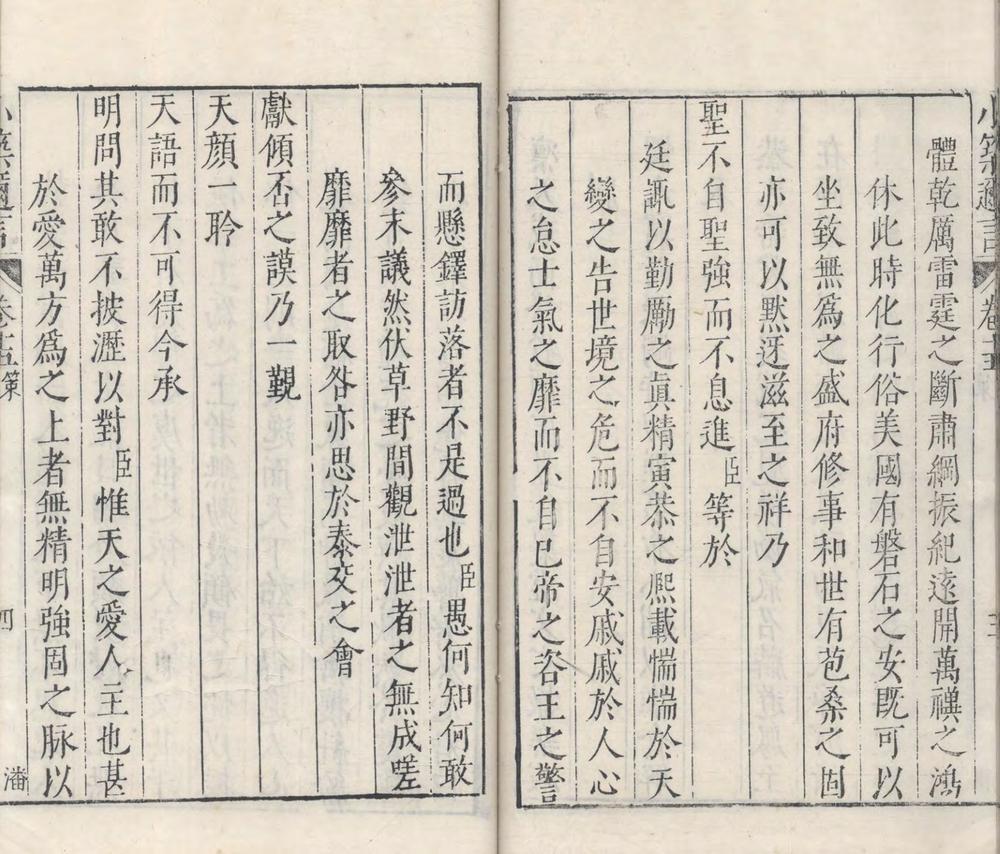 體乾厲雷霆之斷肅綱振紀遠開萬禩之鴻
休此時化行俗美國有磐石之安既可以
坐致無爲之盛府修事和世有苞桑之固
亦可以默迓滋至之祥乃
聖不自聖強而不息進臣等於
廷諏以勤勵之真精寅恭之熙載惴惴於天
變之告世境之危而不自安戚戚於人心
之怠士氣之靡而不自已帝之咨王之警
而懸鐸訪落者不是過也臣愚何知何敢
參末議然伏草野間觀泄泄者之無成嗟
靡靡者之取咎亦思於泰交之會
獻傾否之謨乃一覿
天顏一聆
天語而不可得今承
明問其敢不披瀝以對臣惟天之愛人主也甚
於愛萬方爲之上者無精明強固之脉以
小築邇言 卷十五 策 四 潘